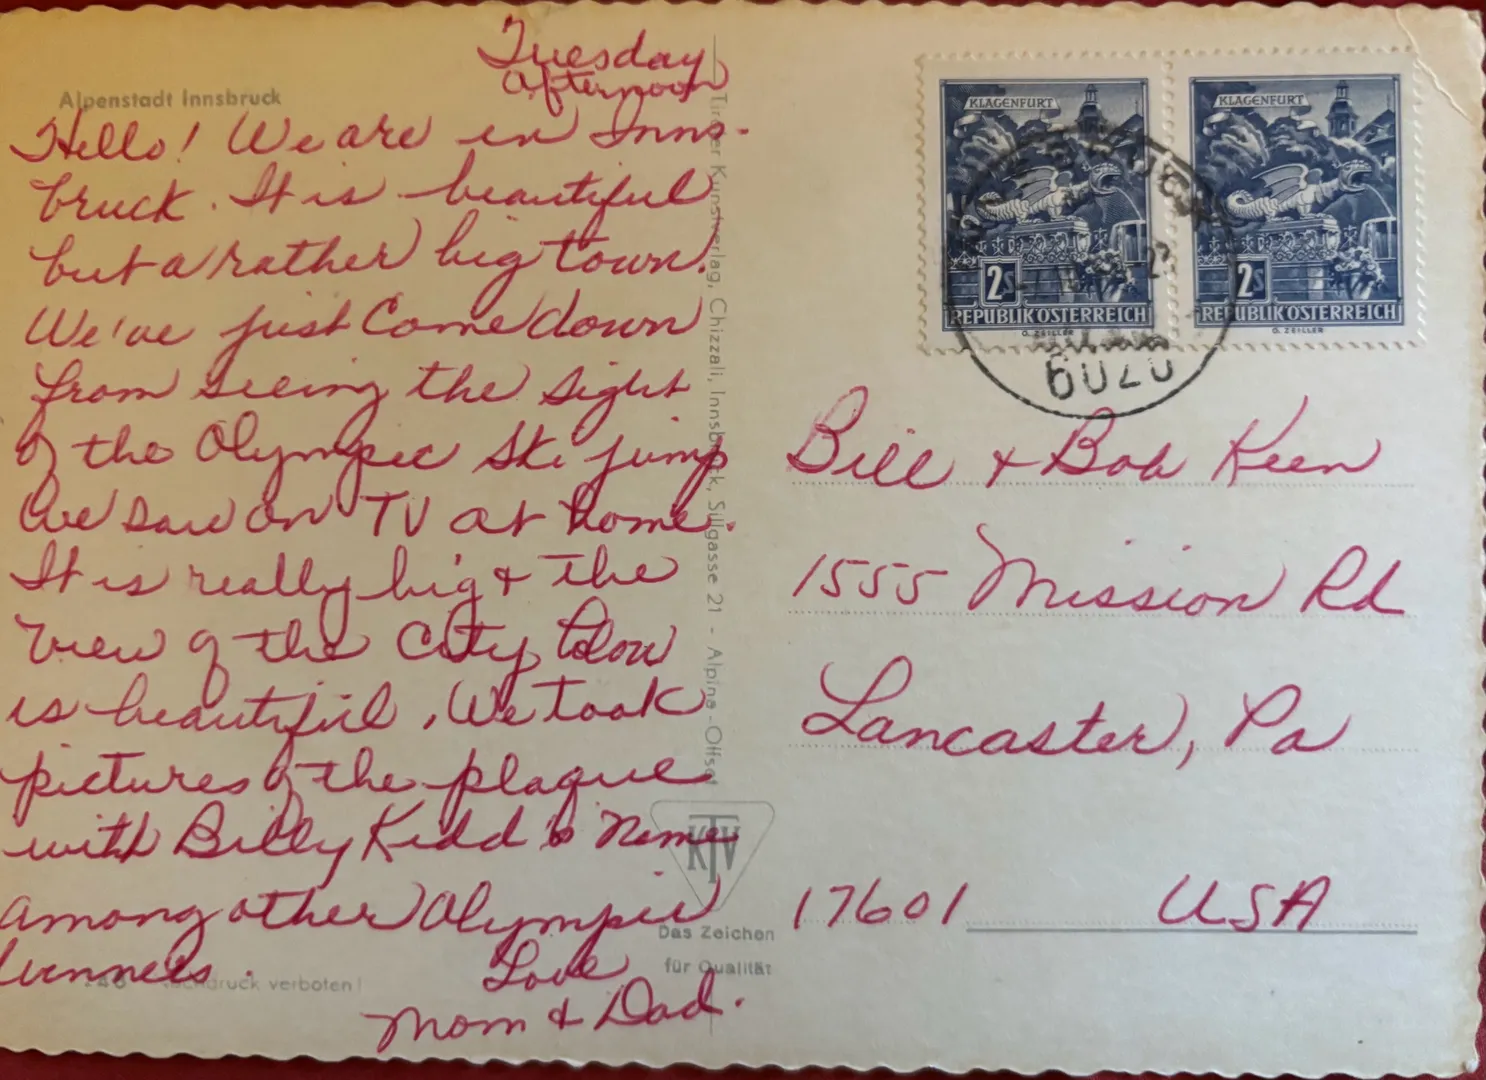 Alpenstadt Innsbruck
Tuesday
Afternoon
Hello! We are in Inns-
bruck. It is beautiful
but a rather big town.
We've just come down
from seeing the sight
of the Olympic Ski jump
we saw on TV at home.
It is really big & the
view of the City below
is beautiful. We took
pictures of the plaque
with Billy Kidd's name
among other Olympic
winners.
Love
Mom & Dad.
Nachdruck verboten!
Tiroler Kunstverlag, Chizzali, Innsbruck, Sillgasse 21 - Alpina-Offset
KTV
Das Zeichen
für Qualität
KLAGENFURT
2S
REPUBLIK ÖSTERREICH
G. ZEILLER
KLAGENFURT
2S
REPUBLIK ÖSTERREICH
G. ZEILLER
6020
Bill & Bob Keen
1555 Mission Rd
Lancaster, Pa
17601 USA